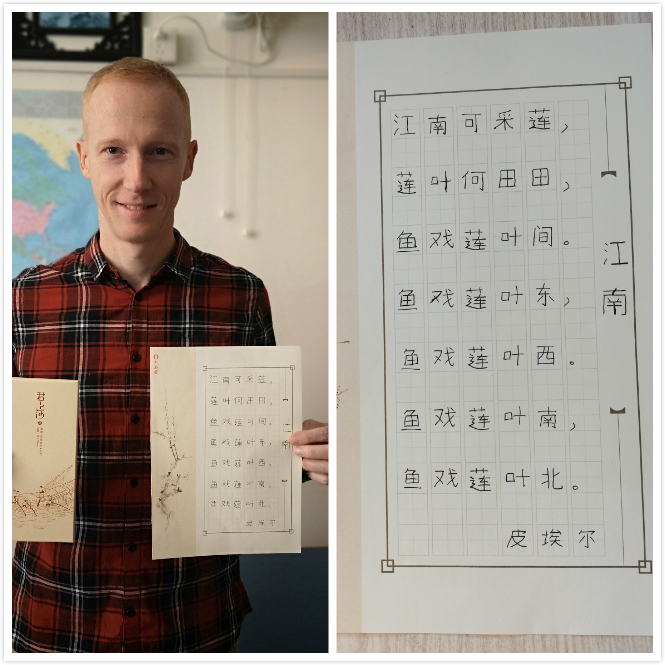 江南
江南可采莲,
莲叶何田田,
鱼戏莲叶间。
鱼戏莲叶东,
鱼戏莲叶西。
鱼戏莲叶南,
鱼戏莲叶北。
皮埃尔